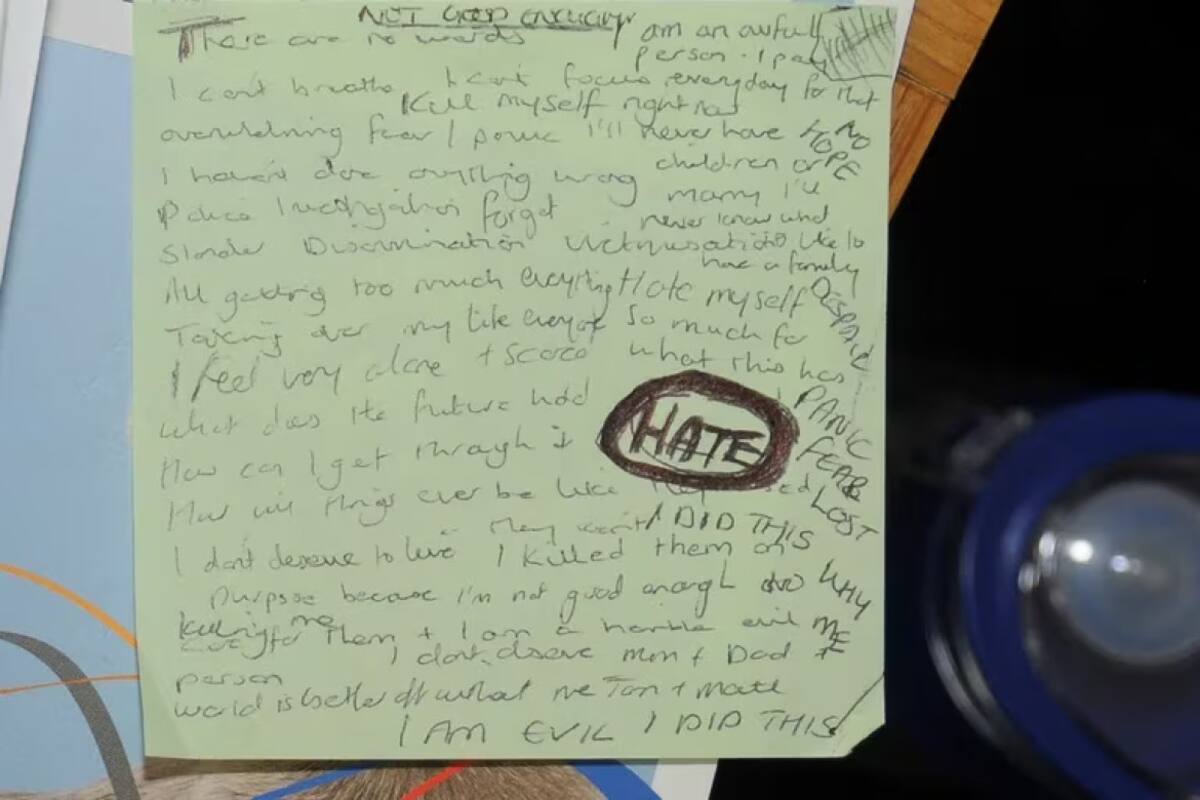 NOT GOOD ENOUGH
There are no words
I am an awful
person. I pay
I can't breathe I can't focus everyday for that
Kill myself right now
overwhelming fear / panic I'll never have NO
HOPE
children or
I haven't done anything wrong marry I'll
Police Investigation forget never know what
Slander Discrimination Victimisation it's like to
have a family
All getting too much everything Hate myself DESPAIR
Taking over my life everyone so much for
I feel very alone + scared what this has
what does the future hold HATE PANIC
How can I get through it FEAR
How will things ever be like they used LOST
they won't I DID THIS
I don't deserve to live I killed them on
purpose because I'm not good enough WHY
killing me
care for them + I am a horrible evil ME
I don't deserve Mum + Dad +
person
world is better off without me
I AM EVIL I DID THIS